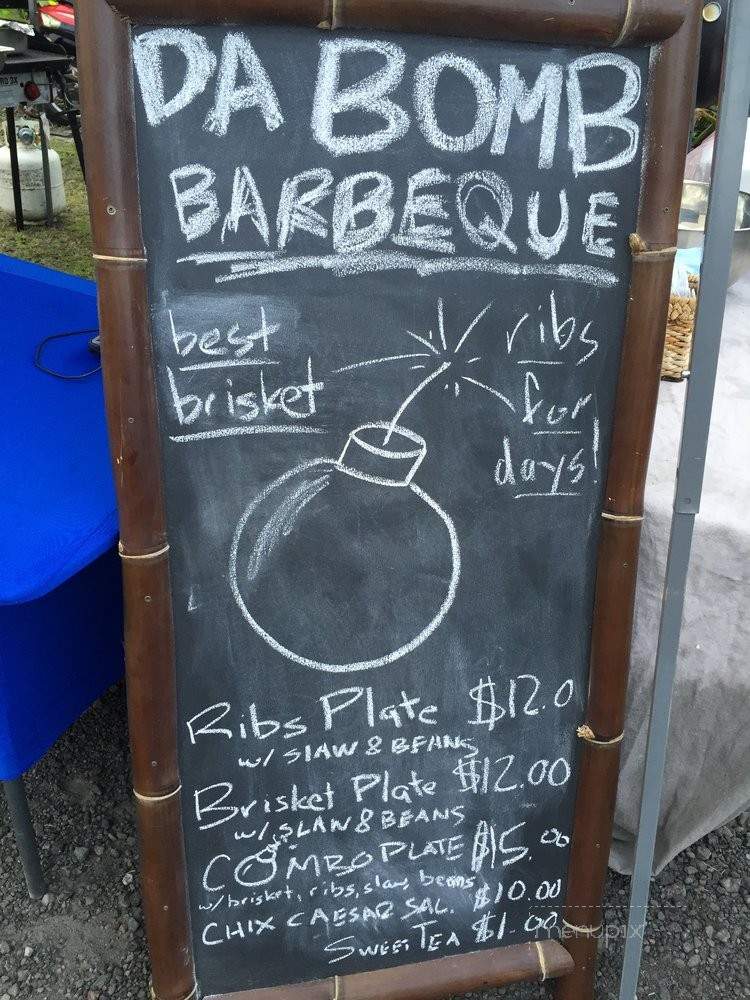 DA BOMB
BARBEQUE
best
brisket
ribs
for
days!
Ribs Plate $12.0
w/ SLAW & BEANS
Brisket Plate $12.00
w/ SLAW & BEANS
COMBO PLATE $15.00
w/ brisket, ribs, slaw, beans
CHIX CAESAR SAL. $10.00
SWEET TEA $1.00
menupix